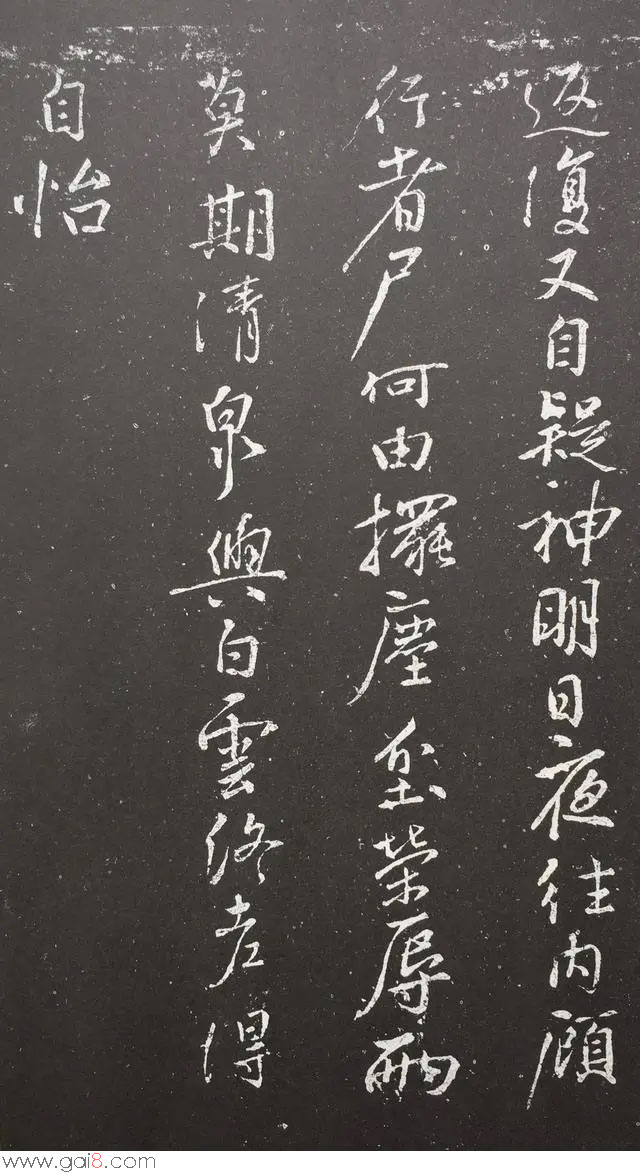 返復又自疑神明日夜往内顧
行者尸何由擺塵坌榮辱兩
莫期清泉與白雲終老得
自怡
www.gai8.com